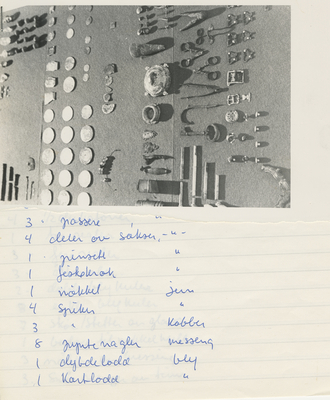 3 " passere , "
4 deler av sakser, -"-
1 pinsett "
1 feskekrok "
1 nøkkel jern
4 spiker "
3 " kobber
8 gyntenagler messing
1 dybdelodd bly
1 kastlodd "